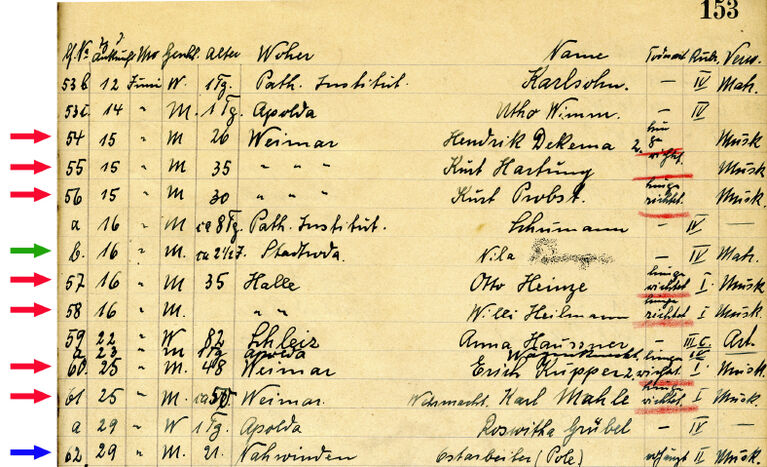 153
Lf. No Ankunft Mo Geschl. Alter Woher Name Todesart Rubr. Verw.
53b 12 Juni W. 1 Tg. Path. Institut. Karlsohn. – IV Mah.
53c. 14 " M. 1 Tg. Apolda Utho Wimm. – IV
54 15 " M 26 Weimar Hendrik Dekema 2. hingerichtet. Musk
55 15 " M 35 " " " Kurt Hartung Musk
56 15 " M 30 " " " Kurt Probst. hingerichtet. Musk.
a 16 " M ca 8 Tg. Path. Institut. Schumann – IV –
b. 16 " M. ca 2½ J. Stadtroda. Nila – IV Mah.
57 16 " M 35 Halle Otto Heinze hingerichtet I. Musk
58 16 " M. " " Willi Heilmann hingerichtet I Musk.
59 22 " W 82 Schleiz Anna Haussner – III c. Art.
a 23 " M 1 Tg Apolda – IV –
60. 25 " M. 48 Weimar Erich Kupper 2. hingerichtet. I. Musk.
61 25 " M. ca 50 Weimar. Wehrmacht. Karl Mahle hingerichtet. I Musk
a 29 " W 1 Tg. Apolda Roswitha Grübel – IV –
62. 29 " M. 21. Nahwinden Ostarbeiter (Pole) erhängt II Musk.